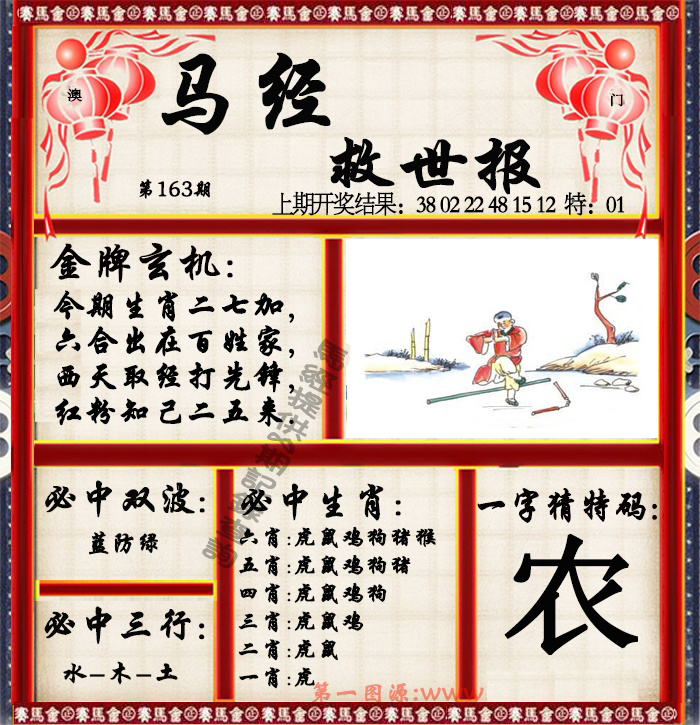 賽馬會㊣賽馬會㊣賽馬會㊣賽馬會㊣賽馬會㊣賽馬會㊣賽馬會㊣
澳
门
马经
救世报
第163期
上期开奖结果：38 02 22 48 15 12 特：01
金牌玄机：
今期生肖二七加，
六合出在百姓家，
西天取经打先锋，
红粉知己二五来．
必中双波：
蓝防绿
必中三行：
水－木－土
必中生肖：
六肖：虎鼠鸡狗猪猴
五肖：虎鼠鸡狗猪
四肖：虎鼠鸡狗
三肖：虎鼠鸡
二肖：虎鼠
一肖：虎
一字猜特码：
农
第一图源:www